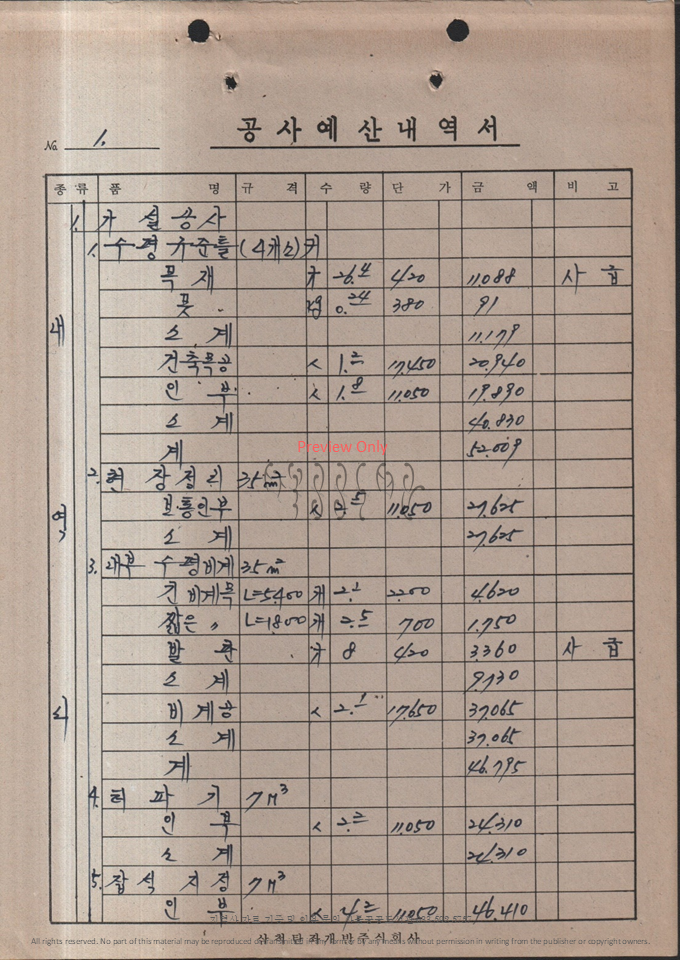 공사예산내역서
No. 1.
종류 품명 규격 수량 단가 금액 비고
1. 가설공사
1. 수평규준틀 (4개소)
목재 才 26.4 420 11.088 사급
못 0.24 380 91
내 소계 11.179
건축목공 人 1.2 17.450 20.940
인부 人 1.8 11.050 19.890
소계 40.830
계 52.009
Preview Only
2. 현장정리 35m²
역 보통인부 人 2.5 11.050 27.625
소계 27.625
3. 내부 수평비계 35m²
긴 비계목 L=5.400 개 2.1 2200 4.620
짧은 〃 L=1.800 개 2.5 700 1.750
발판 才 8 420 3.360 사급
소계 9.730
비계공 人 2.1 17.650 37.065
소계 37.065
계 46.795
4. 터파기 7M³
인부 人 2.2 11.050 24.310
소계 24.310
5. 잡석지정 7M³
인부 人 4.2 11.050 46.410
All rights reserved. No part of this material may be reproduced or transmitted in any form or by any means without permission in writing from the publisher or copyright owners.